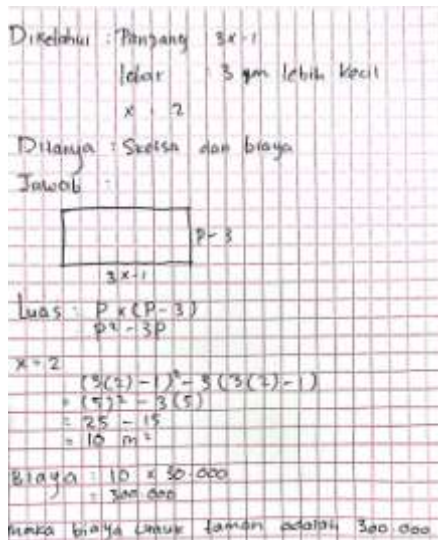 Diketahui : Panjang 3x-1
lebar : 3 ym lebih kecil
x : 2
Ditanya : Sketsa dan biaya
Jawab :
P-3
3x-1
Luas : P x (P-3)
P² - 3P
x = 2
(3(2)-1)² - 3(3(2)-1)
= (5)² - 3(5)
= 25 - 15
= 10 m²
Biaya : 10 x 30.000
= 300.000
maka biaya untuk taman adalah 300.000